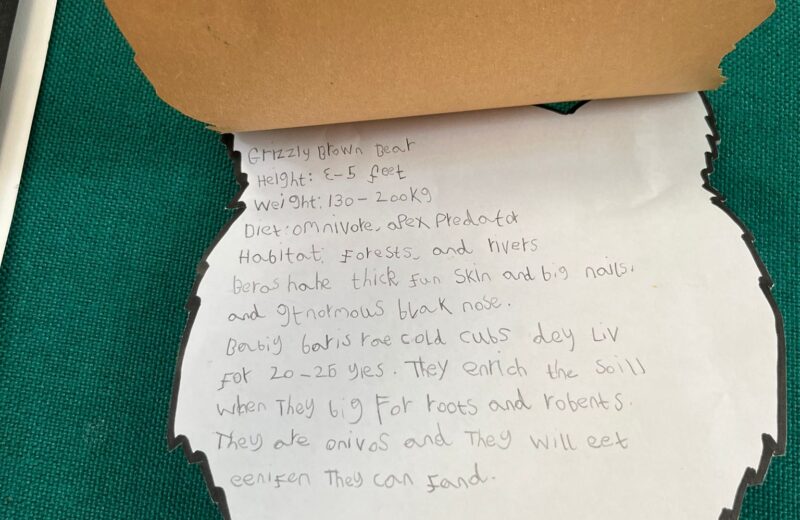 Grizzly Brown Bear
Height: 3-5 feet
Weight: 130-200Kg
Diet: omnivore, apex Predator
Habitat: Forests, and rivers
beras habe thick fun skin and big nails.
and gtnormous blak nose.
Babiy baris rae cold cubs dey Liv
For 20-25 yies. They enrich the soill
when They big For roots and robents.
They are onivos and They will eet
eenifen They can fand.